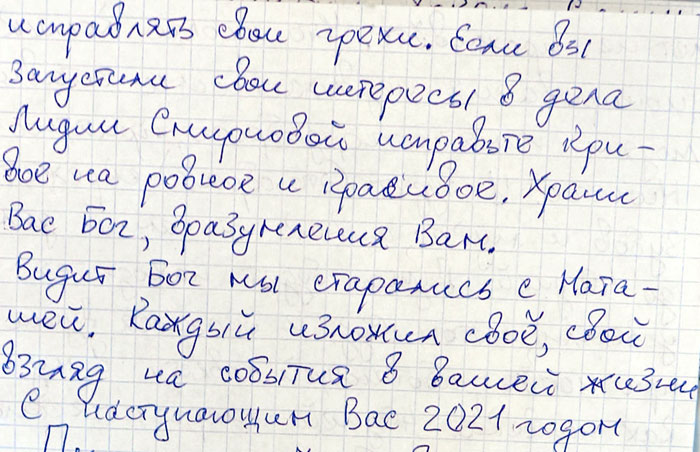 исправлять свои грехи. Если вы
Запустили свои интересы в дела
Лидии Смирновой исправьте кри-
вое на ровное и красивое. Храни
Вас Бог, вразумления Вам.
Видит Бог мы старались с Ната-
шей. Каждый изложил своё, свой
взгляд на события в вашей жизни
С наступающим Вас 2021 годом